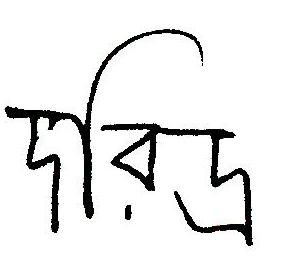 দরিদ্র